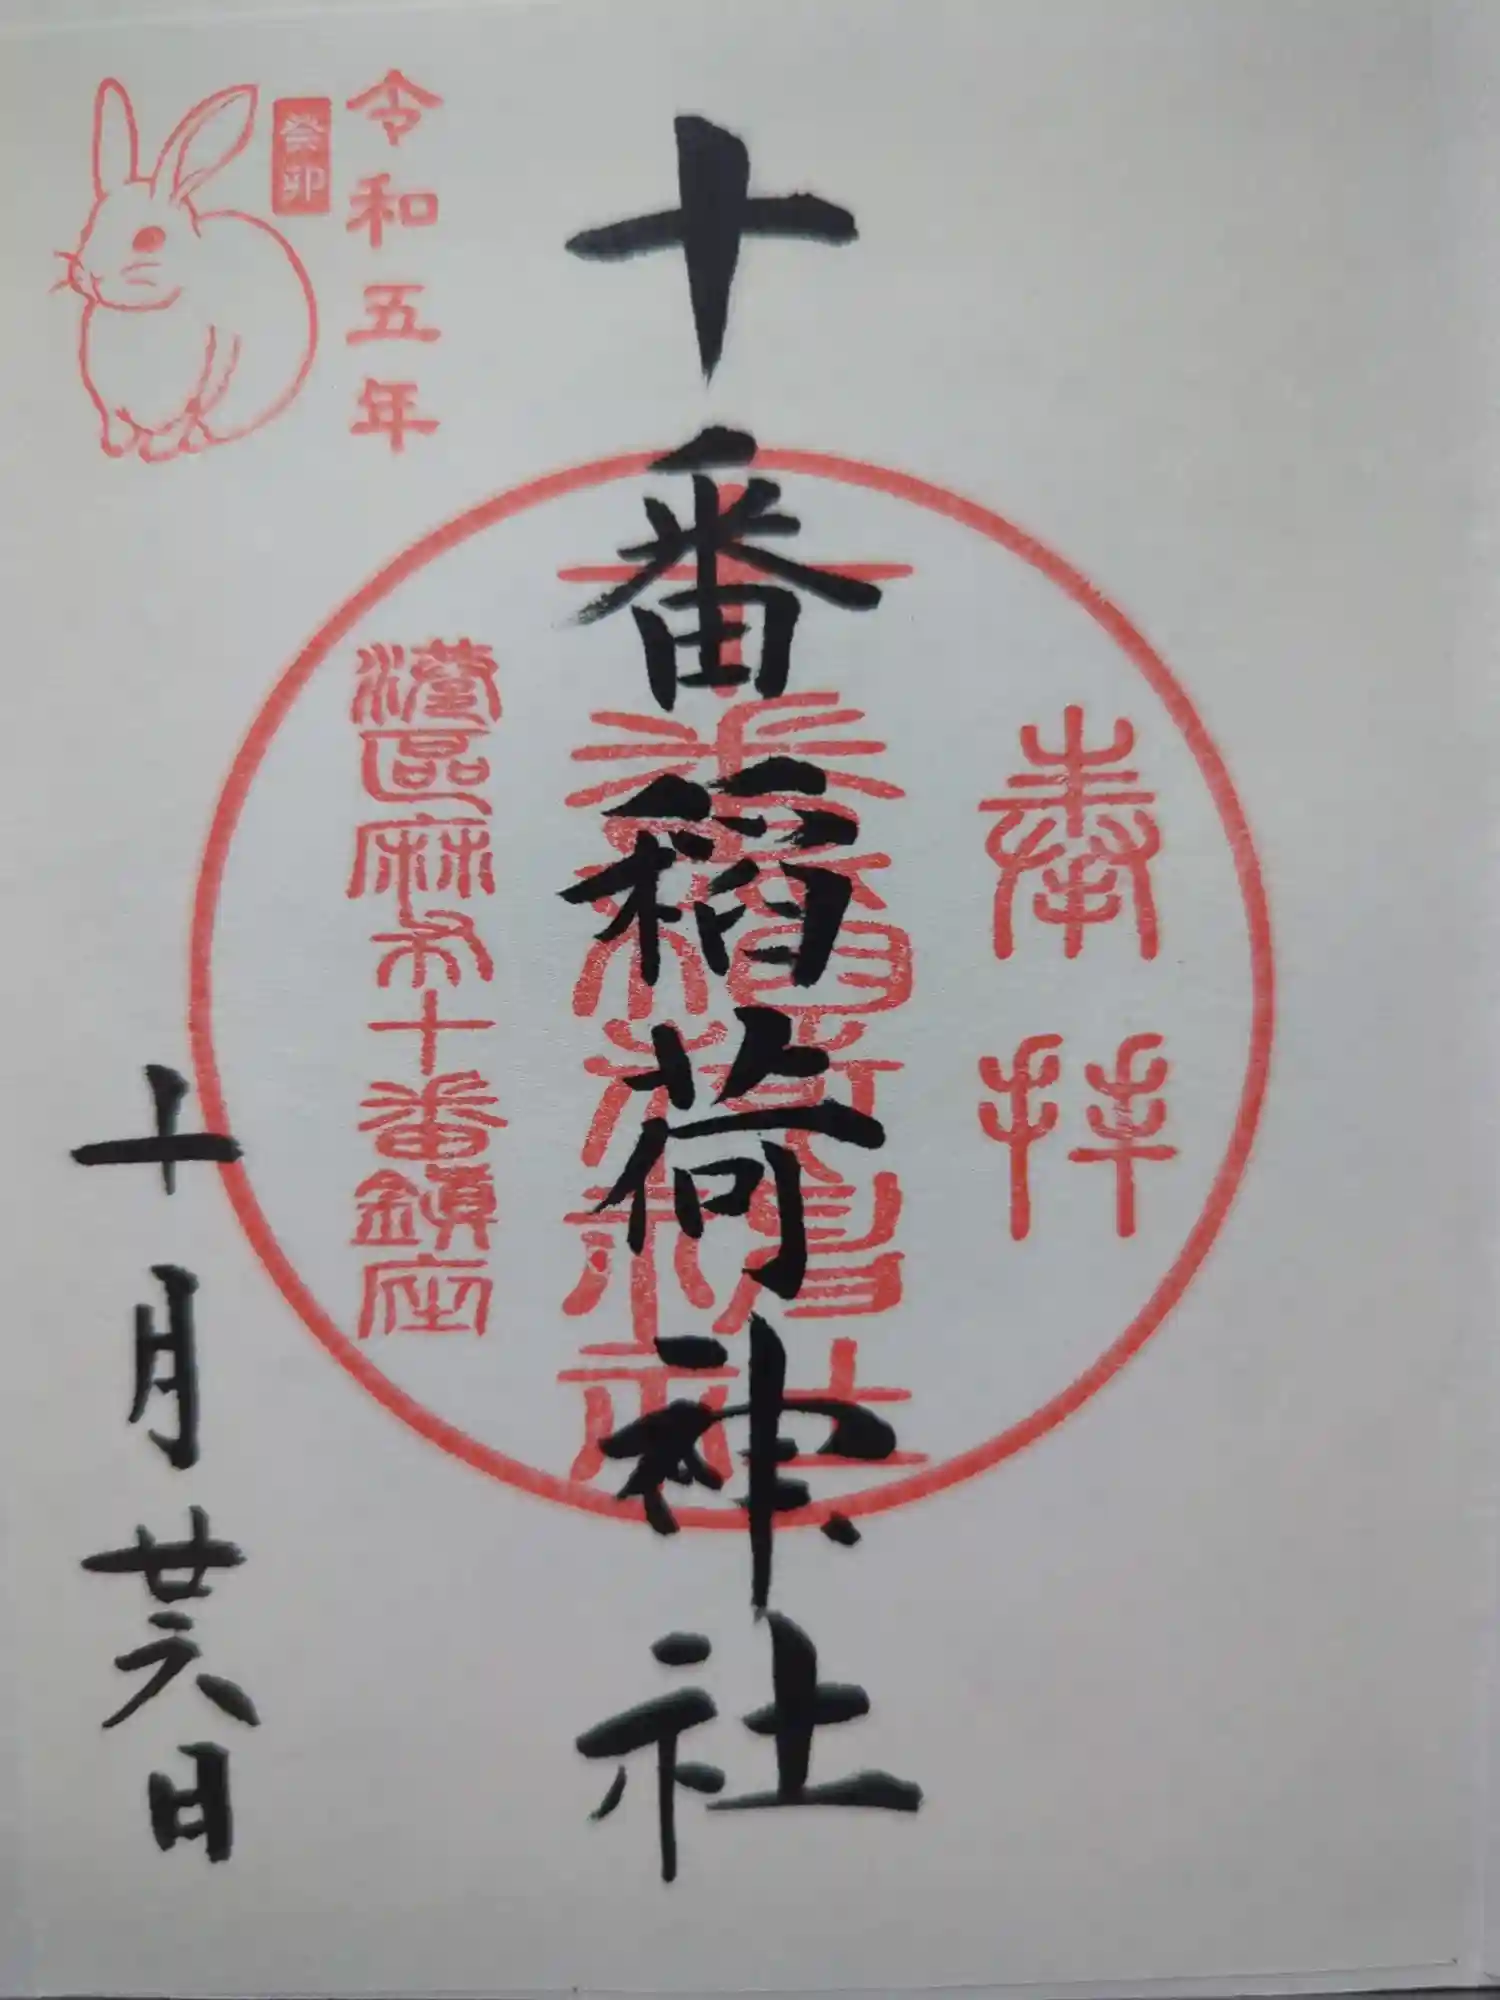 奉拝
十番稲荷神社
十番稲荷神社
港區麻布十番鎮座
令和五年
癸卯
十月廿六日